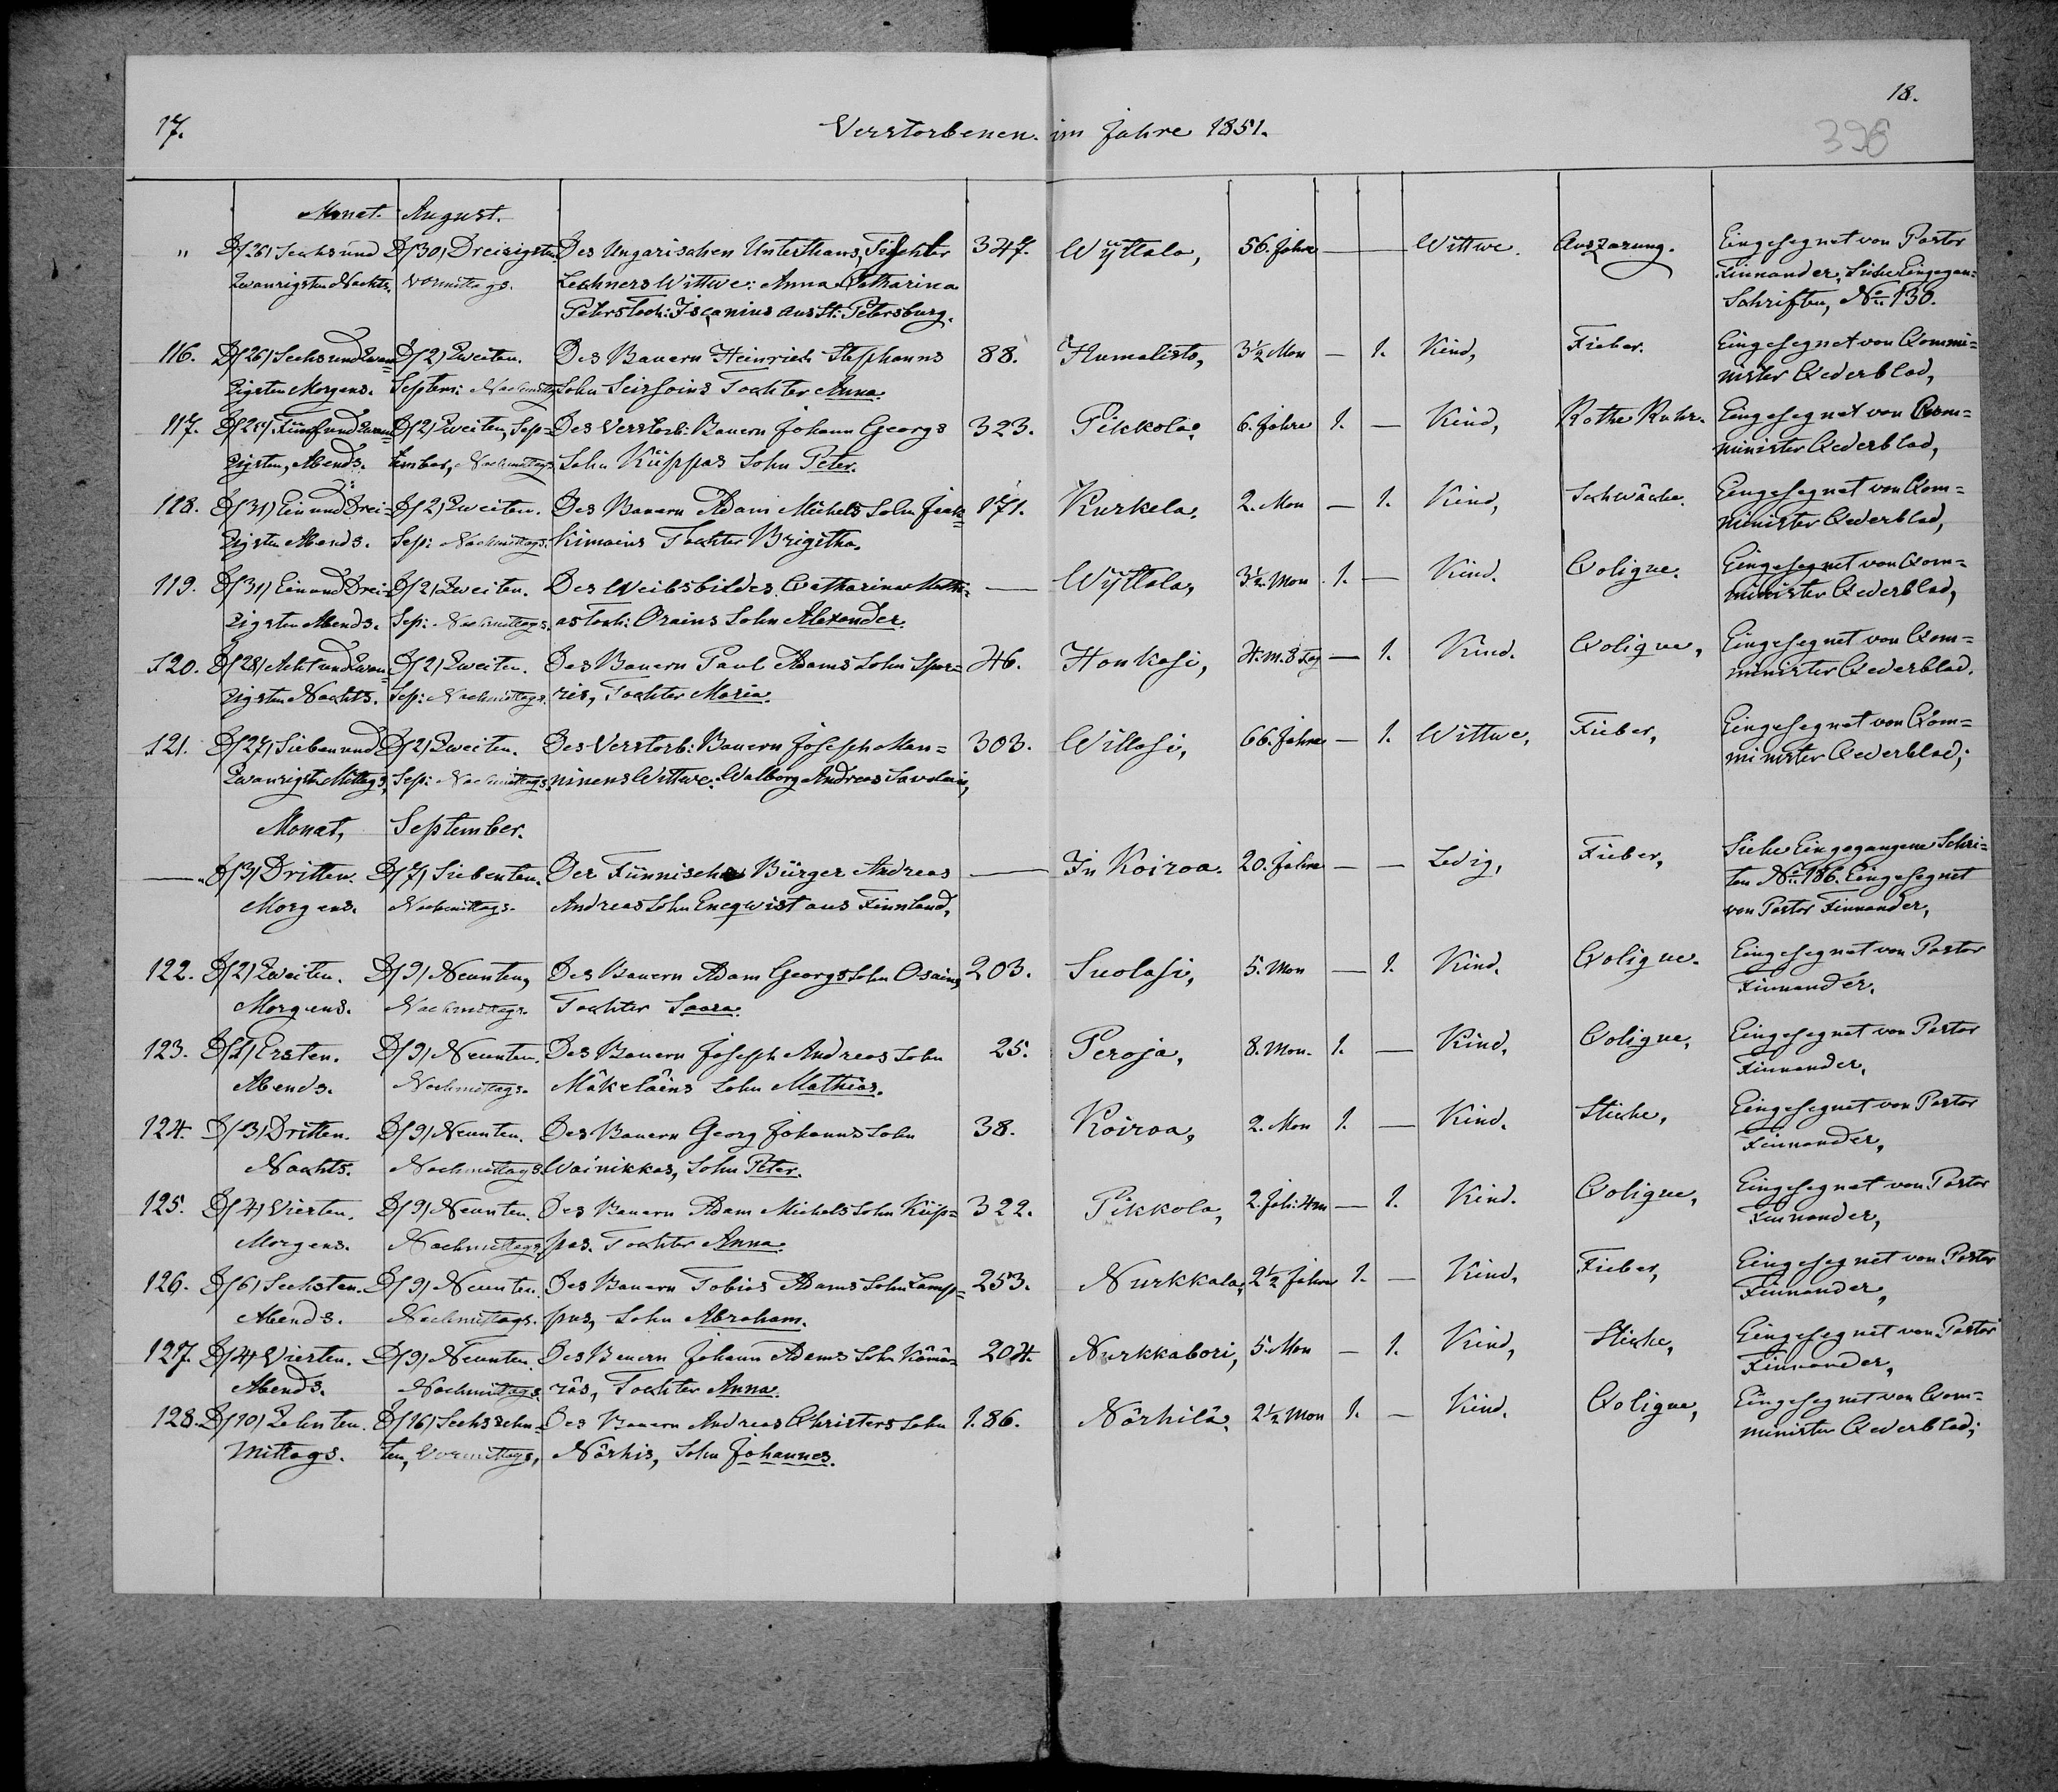 17.
Verstorbenen im Jahre 1851.
18.
398
Monat. August.
" D/26/ Sechsund D/30/ Dreisigsten Des Ungarischen Unterthans, Tischler 347. Wÿllola, 56. Jahre — — Wittwe. Auszärung. Eingesegnet von Pastor
Zwanzigsten Nachts. Vormittags. Lechners Wittwe: Anna Catharina Finnander, Siehe Eingegan=
Petrs Toch: Iscanius aus St: Petersburg. Schriften, No 130.
116. D/26/ Sechsund Zwan= D/2/ Zweiten. Des Bauern Heinrich Stephanns 88. Humalisto, 3½ Mon — 1. Kind, Fieber. Eingesegnet von Commi=
zigsten Morgens. Septem: Nachmittags Sohn Seissoins Tochter Anna. nister Cederblad,
117. D/25/ Fünfund Zwan= D/2/ Zweiten, Sep= Des Verstorb: Bauern Johann Georgs 323. Pikkola, 6. Jahre 1. — Kind, Rothe Ruhr. Eingesegnet von Com=
zigsten, Abends. tember, Nachmittags Sohn Küppas Sohn Peter. minister Cederblad,
118. D/31/ Ein und Drei= D/2/ Zweiten. Des Bauern Adam Michels Sohn Jaak= 171. Kurkela, 2. Mon — 1. Kind, Schwäche. Eingesegnet von Com=
zigsten Abends. Sep: Nachmittags. kimains Tochter Brigitha. minister Cederblad,
119. D/31/ Ein und Drei= D/2/ Zweiten. Des Weibsbildes Catharina Math= — Wÿllola, 3½ Mon 1. — Kind. Coligue. Eingesegnet von Com=
zigsten Abends. Sep: Nachmittags. as Toch: Orains Sohn Alexander. minister Cederblad,
120. D/28/ Acht und Zwan= D/2/ Zweiten. Des Bauern Paul Adams Sohn Spor= 46. Honkasi, 4. M. 8 Tag — 1. Kind. Coligue, Eingesegnet von Com=
zigsten Nachts. Sep: Nachmittags. ris, Tochter Maria. minister Cederblad.
121. D/27/ Sieben und D/2/ Zweiten. Des Verstorb: Bauern Joseph Man= 303. Willasi, 66. Jahre — 1. Wittwe, Fieber, Eingesegnet von Com=
Zwanzigsten Mittags, Sep: Nachmittags. ninens Wittwe: Walborg Andreas Savolain, minister Cederblad;
Monat, September.
— D/3/ Dritten. D/7/ Siebenten. Der Finnische Bürger Andreas — In Koiroa. 20. Jahre — — Ledig, Fieber, Siehe Eingegangene Schri=
Morgens. Nachmittags. Andreas Sohn Eneqwist aus Finnland, ten No 186. Eingesegnet
von Pastor Finnander,
122. D/2/ Zweiten. D/9/ Neunten, Des Bauern Adam Georgs Sohn Osains 203. Suolasi, 5. Mon — 1. Kind. Coligue. Eingesegnet von Pastor
Morgens. Nachmittags. Tochter Saara. Finnander.
123. D/1/ Ersten. D/9/ Neunten. Des Bauern Joseph Andreas Sohn 25. Peroja, 8. Mon. 1. — Kind, Coligue, Eingesegnet von Pastor
Abends. Nachmittags. Mäkeläins Sohn Mathias. Finnander,
124. D/3/ Dritten. D/9/ Neunten. Des Bauern Georg Johanns Sohn 38. Koiroa, 2. Mon 1. — Kind. Stiche, Eingesegnet von Pastor
Nachts. Nachmittags. Wainikkas, Sohn Peter. Finnander,
125. D/4/ Vierten. D/9/ Neunten. Des Bauern Adam Michels Sohn Küp= 322. Pikkola, 2. Jah: 4m — 1. Kind. Coligue, Eingesegnet von Pastor
Morgens. Nachmittags. pas. Tochter Anna. Finnander,
126. D/6/ Sechsten. D/9/ Neunten. Des Bauern Tobias Adams Sohn Lamp= 253. Nurkkala, 2½ Jahre 1. — Kind, Fieber, Eingesegnet von Pastor
Abends. Nachmittags. pus, Sohn Abraham. Finnander,
127. D/4/ Vierten. D/9/ Neunten. Des Bauern Johann Adams Sohn Kämä= 204. Nurkkabori, 5. Mon — 1. Kind, Stiche, Eingesegnet von Pastor
Abends. Nachmittags. räs, Tochter Anna. Finnander,
128. D/10/ Zehnten. D/16/ Sechszehn= Des Bauern Andreas Christers Sohn 186. Närhilä, 2½ Mon 1. — Kind. Coligue, Eingesegnet von Com=
Mittags. ten, Vormittags, Närhis, Sohn Johannes. minister Cederblad;